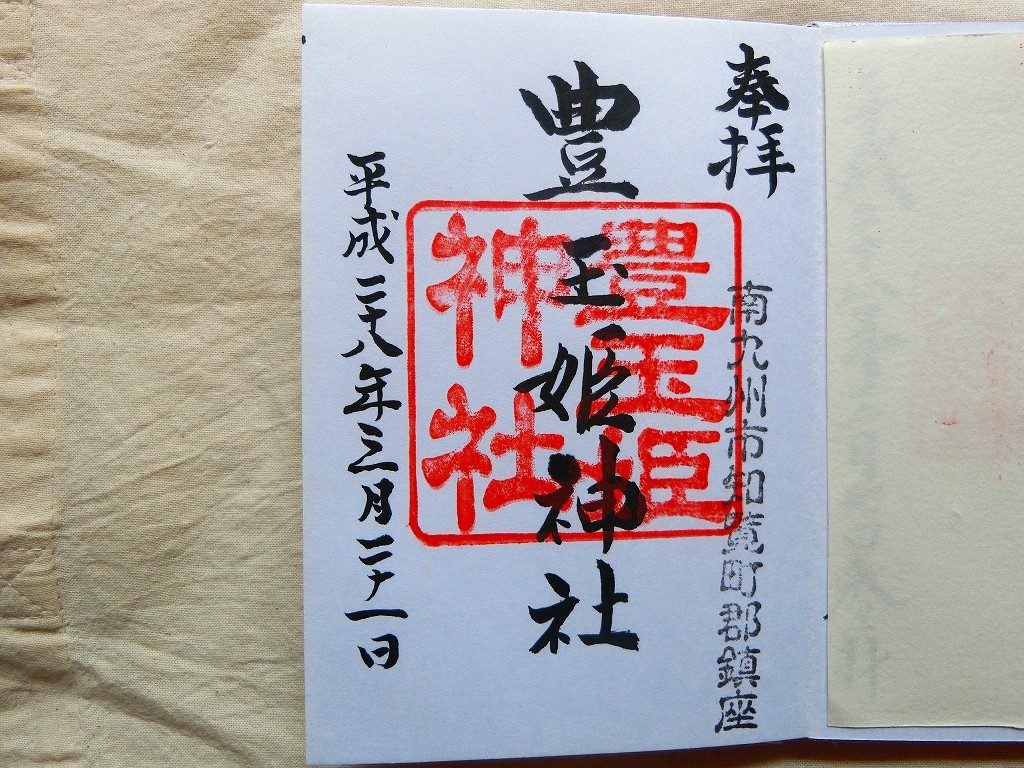 奉拝
南九州市知覧町郡鎮座
豊玉姫神社
豊玉姫
神社
平成二十八年三月二十一日